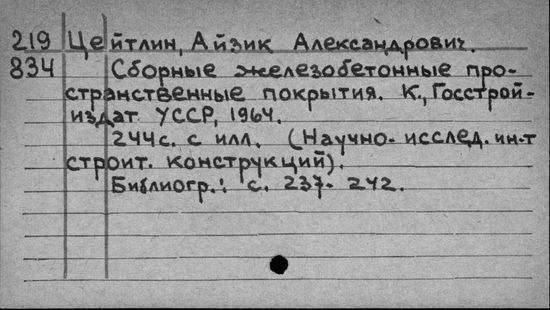 219 Цейтлин, Айзик Александрович.
834 Сборные железобетонные про-
странственные покрытия. К., Госстрой-
издат УССР, 1964.
244с. с илл. (Научно-исслед. ин-т
строит. конструкций).
Библиогр.: с. 237-242.